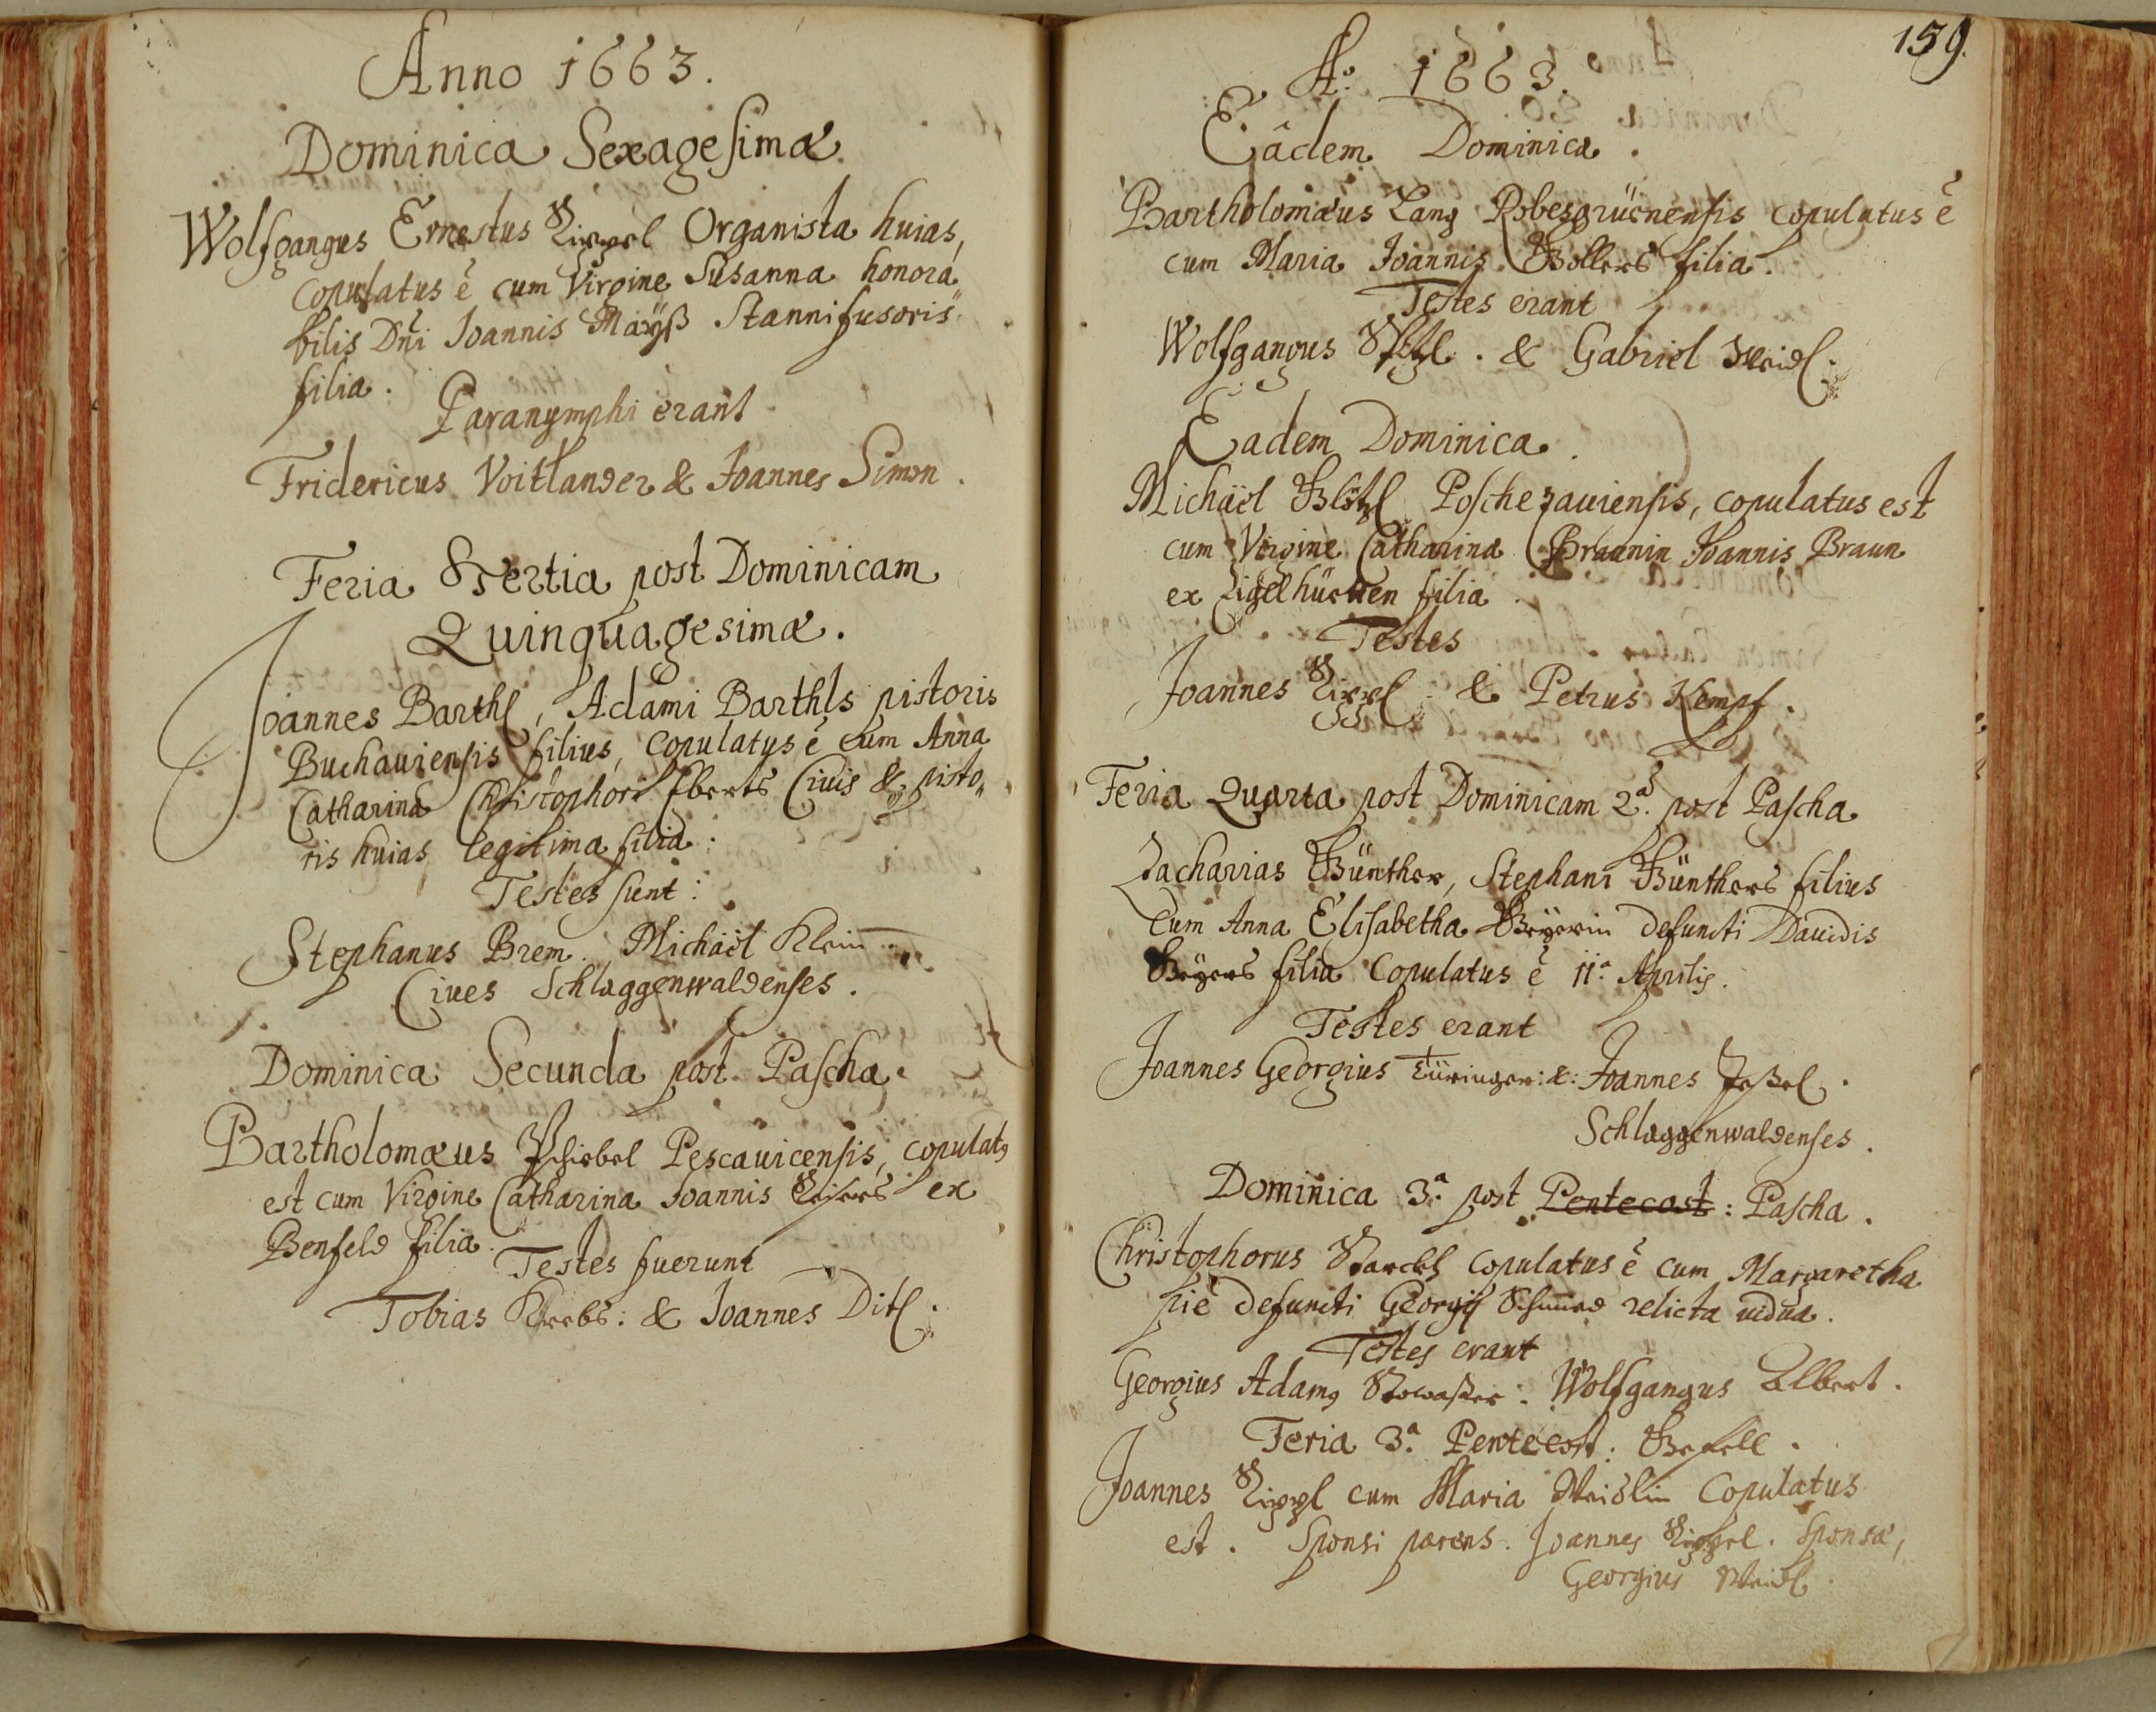 Anno 1663.
Dominica Sexagesimæ
Wolfgangus Ernestus Zippel Organista huias,
copulatus ẽ cum Virgine Susanna honora„
bilis Dñi Joannis Mayß Stannifusoris
filia.
Paranymphi erant
Fridericus Voitlander & Joannes Simon.
Feria Tertia post Dominicam
Quinquagesimæ.
Joannes Barthl, Adami Barthls pistoris
Buchauiensis filius, copulatus ẽ cum Anna
Catharina Christophori Eberts Ciuis & pisto„
ris huias legitima filia:
Testes sunt:
Stephanus Brem. Michäel Klein
Ciues Schlaggenwaldenses.
Dominica Secunda post Pascha.
Bartholomæus Pescauicensis, copulatꝰ
est cum Virgine Catharina Joannis ex
Benfeld filia.
Testes fuerunt
Tobias Krebs: & Joannes Ditl.
159.
Aº. 1663.
Eâdem Dominica.
Bartholomæus Lang Robesgrüenensis copulatus ẽ
cum Maria Joannis filia.
Testes erant
Wolfgangus & Gabriel Weidl.
Eadem Dominica.
Michäel Poschezauiensis, copulatus est
cum Virgine Catharina Braunin Joannis Braun
ex Zigelhütten filia.
Testes
Joannes Zippl & Petrus Kempf.
Feria Quarta post Dominicam 2ª. post Pascha
Zacharias Günther, Stephani Günthers filius
cum Anna Elisabetha Beÿerin defuncti Dauidis
Beÿers filia Copulatus ẽ 11ª Aprilis.
Testes erant
Joannes Georgius Türinger: &: Joannes
Schlaggenwaldenses.
Dominica 3ª. post Pentecost: Pascha.
Christophorus Starckl copulatus ẽ cum Margaretha
piè defuncti Georgij relicta uidua.
Testes erant
Georgius Adamꝰ Stowasser: Wolfgangus Albert.
Feria 3ª. Pentecost:
Joannes Zippl cum Maria Weidlin Copulatus
est. Sponsi parens. Joannes Zippel. Sponsæ,
Georgius Weidl.